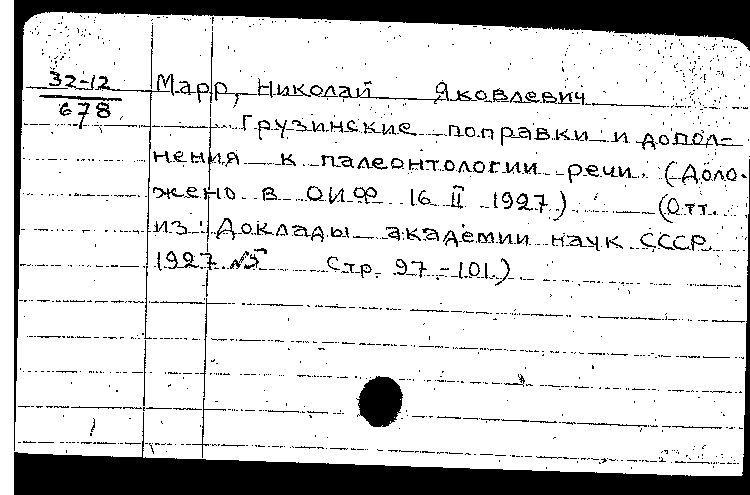 32-12
678
Марр, Николай Яковлевич
Грузинские поправки и допол-
нения к палеонтологии речи. (Доло-
жено в ОИФ 16 II 1927.) (Отт.
из: Доклады академии наук СССР
1927 №5 Стр. 97-101.)